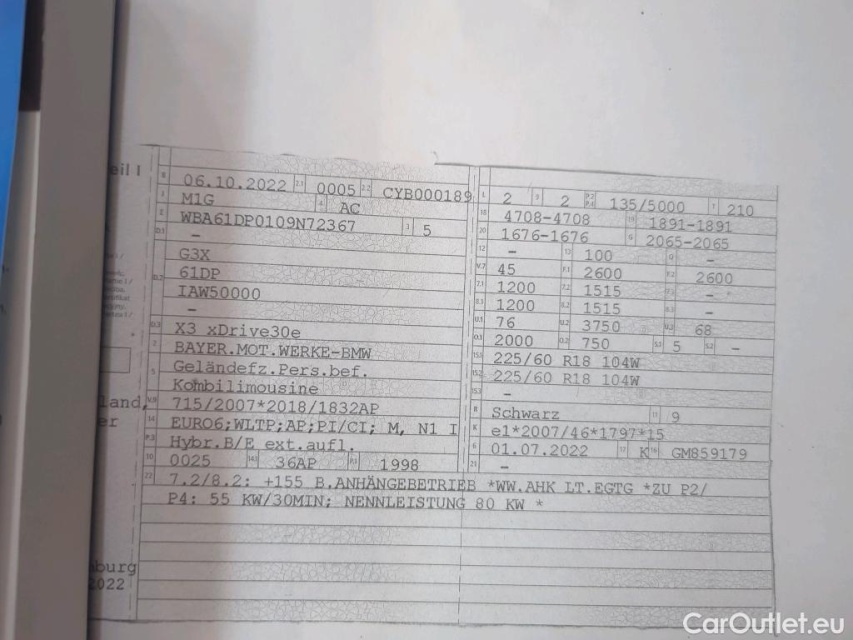 eil I
06.10.2022 2.1 0005 2.2 CYB000189
M1G AC
WBA61DP0109N72367 3 5
–
G3X
61DP
IAW50000
–
X3 xDrive30e
BAYER.MOT.WERKE-BMW
Geländefz.Pers.bef.
Kombilimousine
715/2007*2018/1832AP
EURO6;WLTP;AP;PI/CI; M, N1 I
Hybr.B/E ext.aufl.
0025 36AP 1998
L 2 9 2 P.2 P.4 135/5000 T 210
18 4708-4708 19 1891-1891
20 1676-1676 G 2065-2065
12 – 13 100 Q –
V.7 45 F.1 2600 F.2 2600
7.1 1200 7.2 1515 –
8.1 1200 8.2 1515 –
U.1 76 U.2 3750 U.3 68
O.1 2000 O.2 750 S.1 5 S.2 –
15.1 225/60 R18 104W
15.2 225/60 R18 104W
15.3 –
R Schwarz 11 9
K e1*2007/46*1797*15
6 01.07.2022 17 K 16 GM859179
21 –
22 7.2/8.2: +155 B.ANHÄNGEBETRIEB *WW.AHK LT.EGTG *ZU P2/
P4: 55 KW/30MIN; NENNLEISTUNG 80 KW *
land,
er
burg
2022
CarOutlet.eu